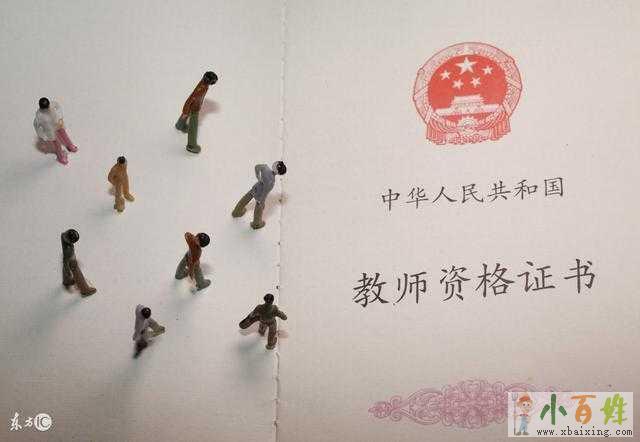 中华人民共和国
教师资格证书
东方IC
小百姓
www.xbaixing.com